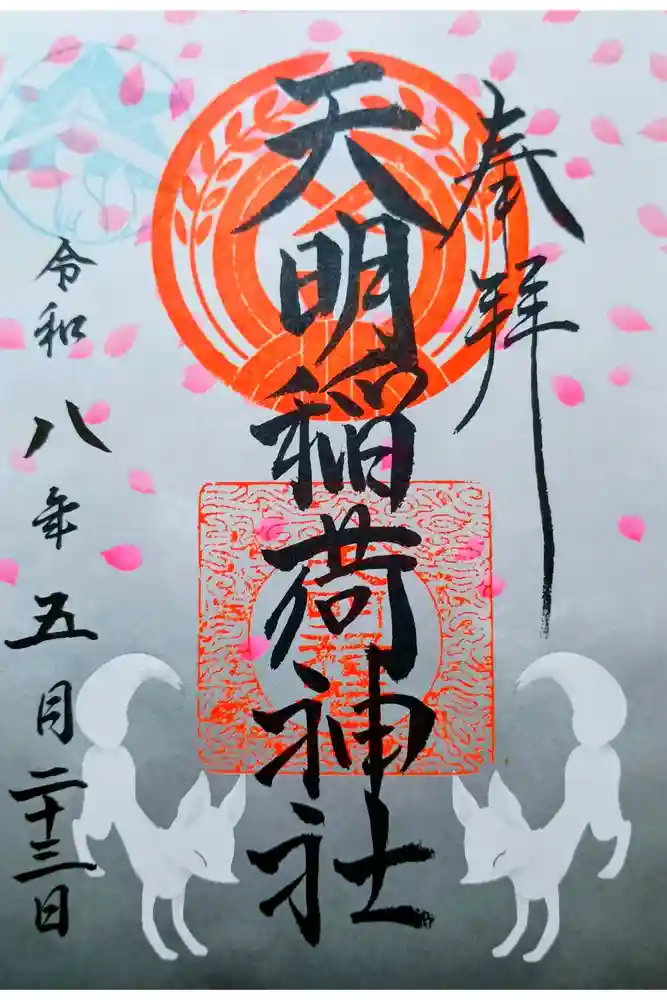 奉拝
天明稲荷神社
令和八年五月二十三日